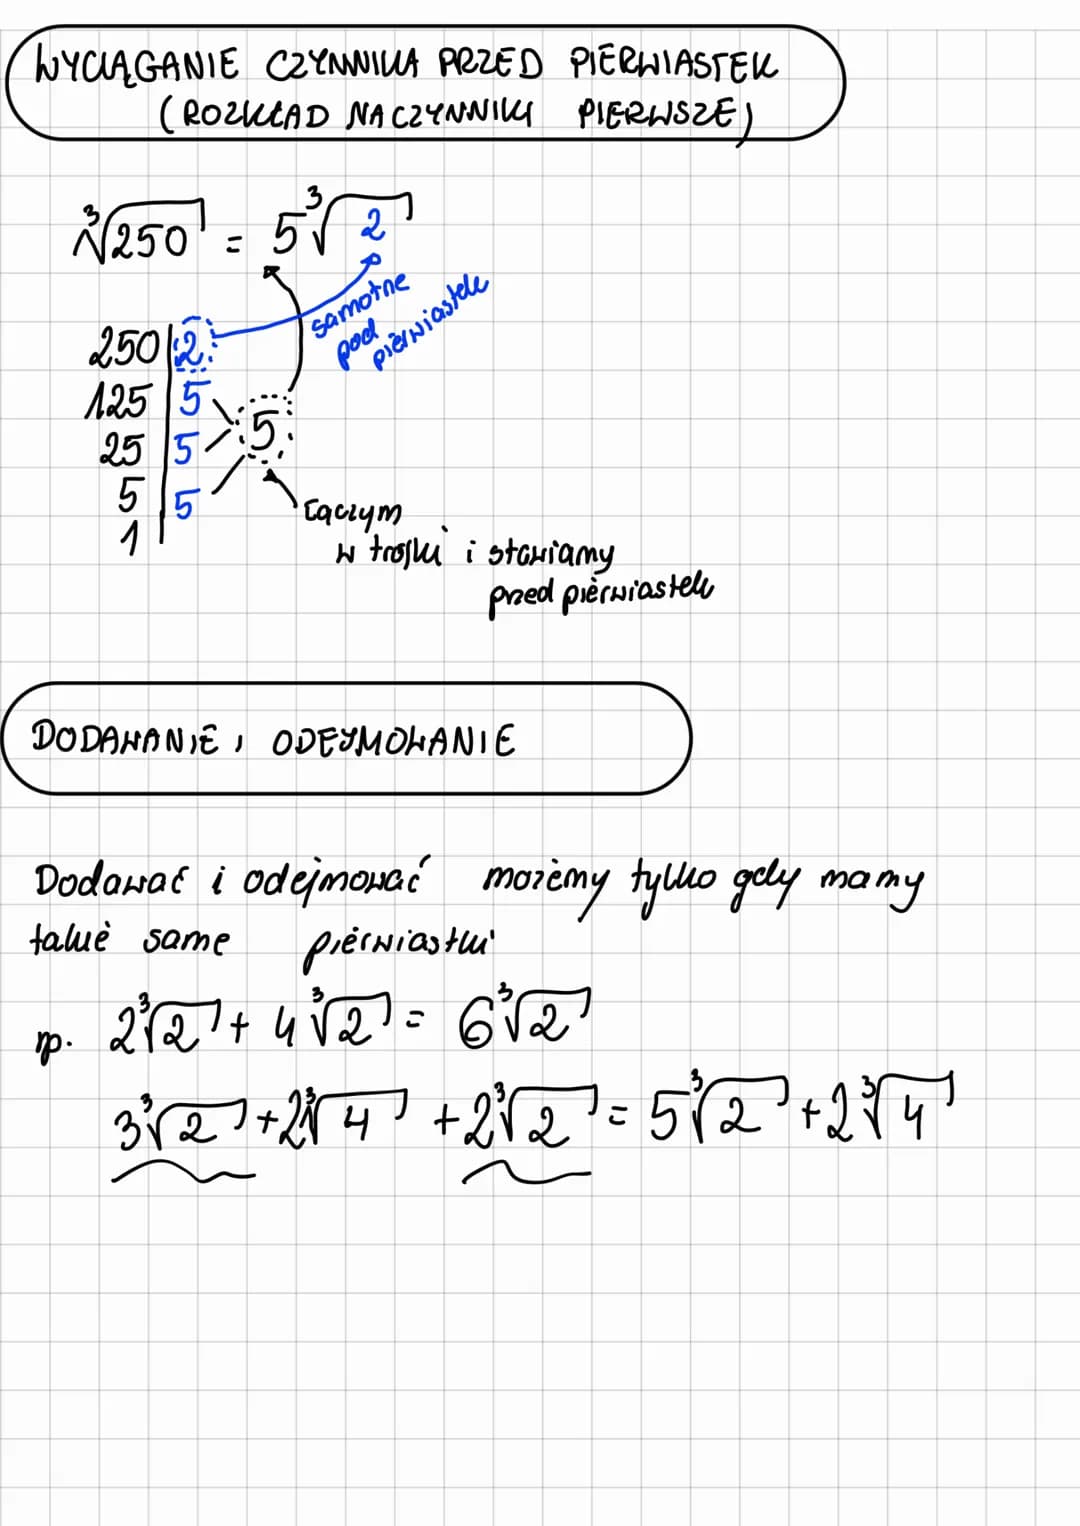 WYCIĄGANIE CZYNNIKA PRZED PIERWIASTEK
(ROZKŁAD NA CZYNNIKI PIERWSZE)
∛250 = 5∛2
samotne
pod
pierwiastek
250 | 2
125 | 5
25 | 5
5 | 5
1 |
5
Łączym
w trójki i stawiamy
przed pierwiastek
DODAWANIE I ODEJMOWANIE
Dodawać i odejmować możemy tylko gdy mamy
takie same pierwiastki
np. 2∛2 + 4∛2 = 6∛2
3∛2 + 2∛4 + 2∛2 = 5∛2 + 2∛4